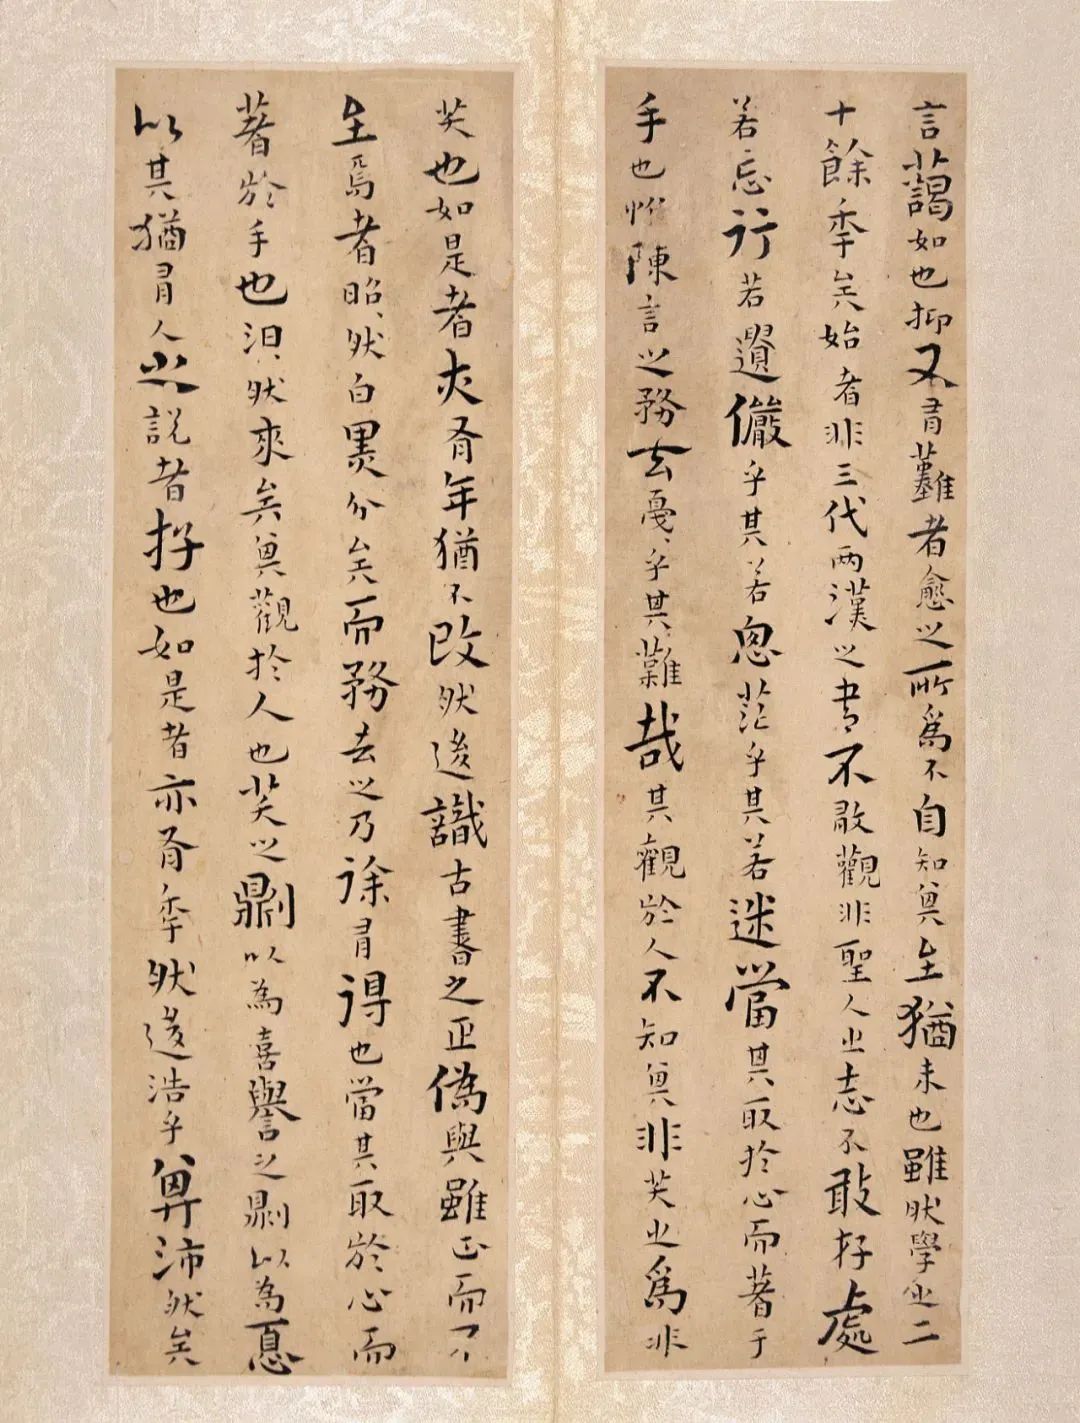 言藹如也抑又有難者愈之所為不自知其至猶未也雖然學之二
十餘年矣始者非三代兩漢之書不敢觀非聖人之志不敢存處
若忘行若遺儼乎其若思茫乎其若迷當其取於心而著于
手也惟陳言之務去戛、乎其難哉其觀於人不知其非笑之為非
笑也如是者亦有年猶不改然後識古書之正偽與雖正而不
至焉者昭、然白黑分矣而務去之乃徐有得也當其取於心而
著於手也汩、然來矣其觀於人也笑之則以為喜譽之則以為憂
以其猶有人之說者存也如是者亦有年然後浩乎其沛然矣